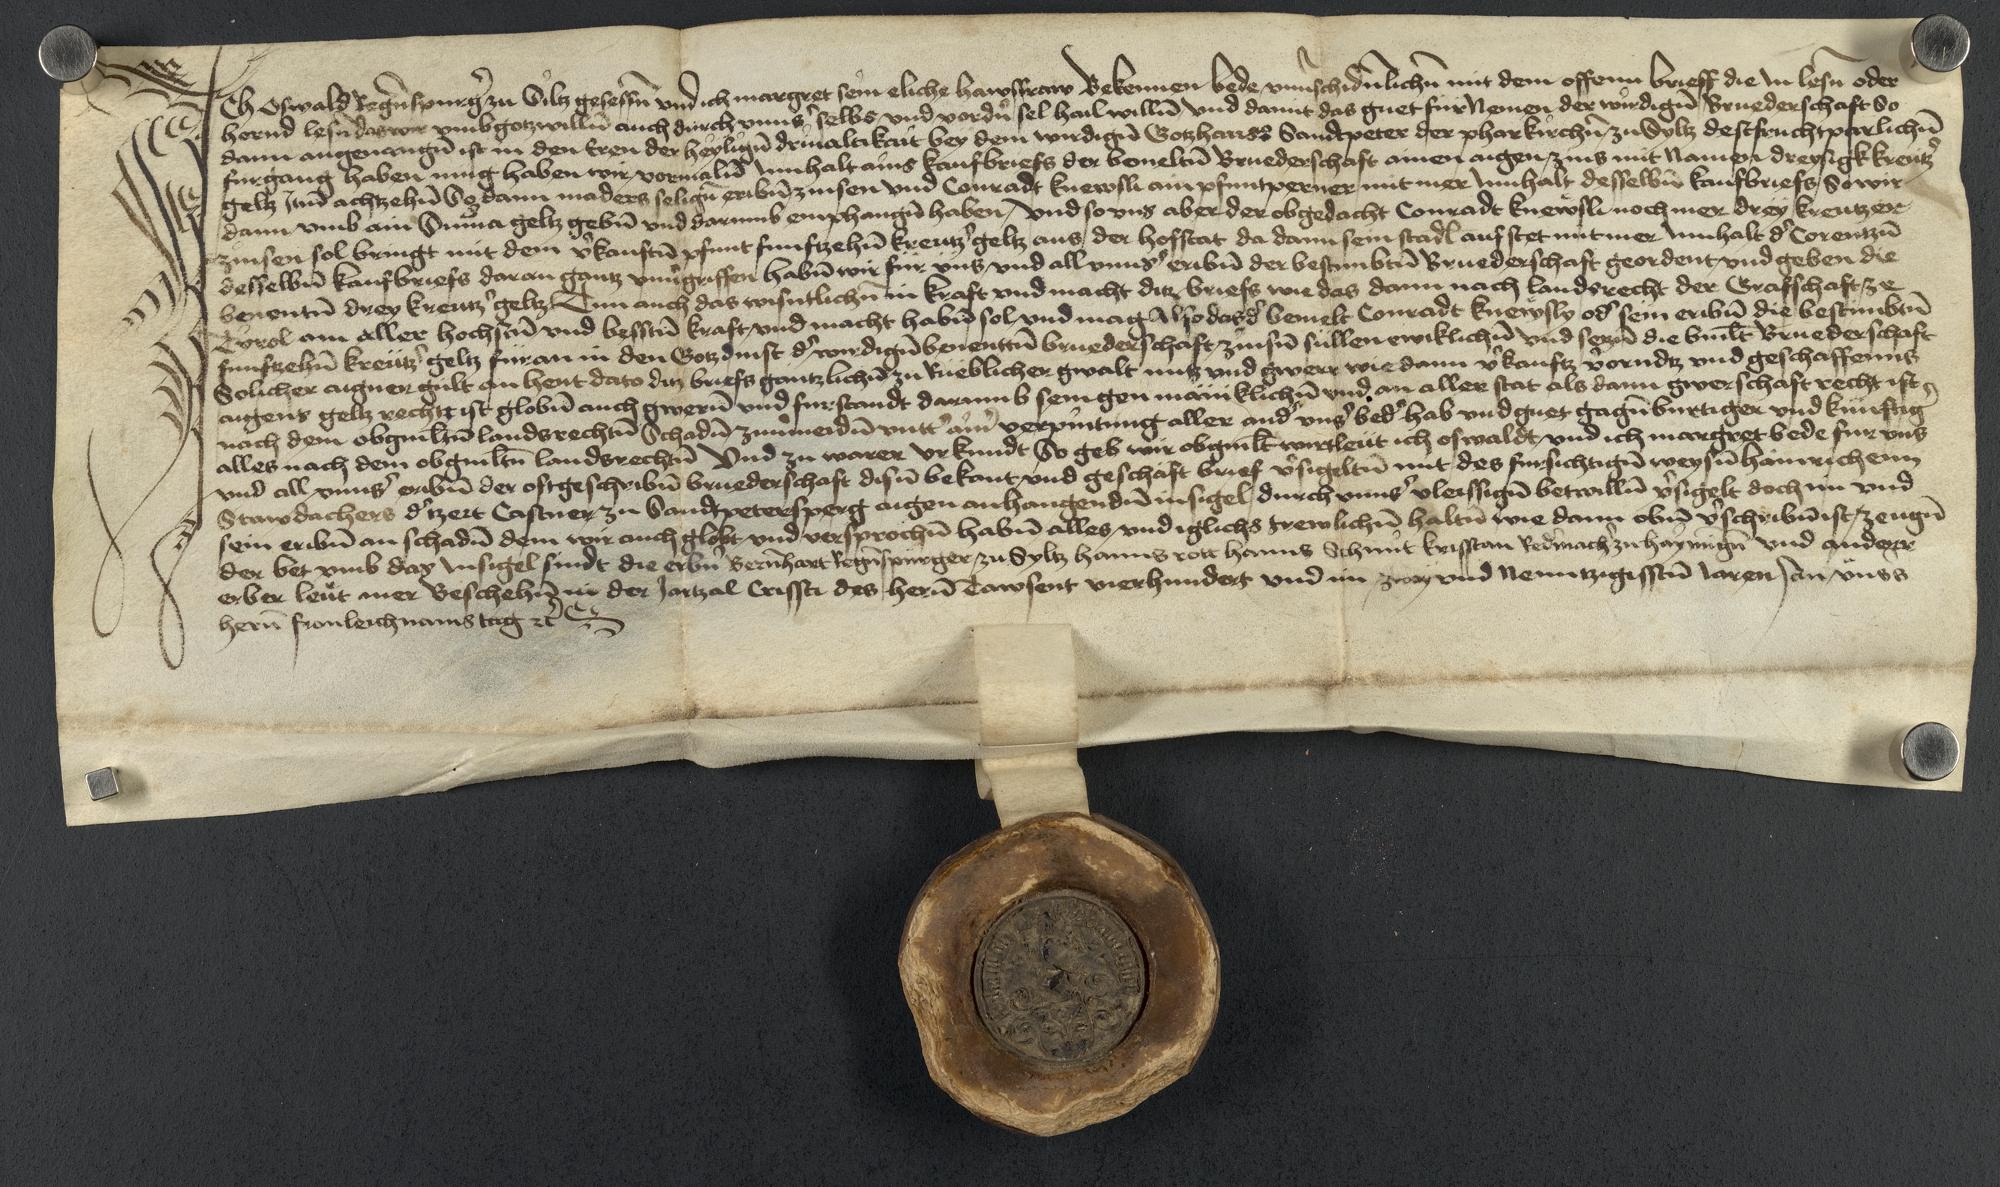 Ich Oswald Regenspurg' zu Siltz gesessn̄ vnd ich margret sein eliche hawsfraw Bekennen bede vnuerschidn̄lichn̄ mit dem offenn brieff die In lesn̄ oder
hornd lesn̄ das wir vmb gotz willn̄ auch durch vnns' selbs vnd vordn̄ sel hail willn̄ vnd damit das guet fur Nemen der wirdign̄ Bruederschaft So
dann angenangn̄ ist in den eren der heylign̄ driualtikait bey dem wirdign̄ Gotzhauss Sandt peter der pharkirchn̄ zu Syltz dest fruchtperlichn̄
furgang haben mug haben wir vormaln̄ Innhalt ains kaufbriefs der bemeltn̄ Bruederschaft ainen aigen zins mit Namen dreysigk kreutz'
geltz Item achtzehn̄ So dann maders selign̄ eribn̄ zinsen vnd Conradt knewsli ain pfunt perner mit mer Innhalt desselbn̄ kaufbriefs So wir
dann vmb ain Sum̄a geltz gebn̄ vnd darumb emphangn̄ haben / vnd so vns aber der obgedacht Conradt knewsli noch mer drey kreutzer
zinsen sol bringt mit dem v'kauftn̄ pfunt funftzehn̄ kreutz' geltz aus der hofstat da dann sein stadl auf stet mit mer Innhalt d' Corentzn̄
desselbn̄ kaufbriefs daran gantz vnu'griffen habn̄ wir fur vns vnd all vnns' eribn̄ der bestimbtn̄ Bruederschaft geordent vnd geben die
benentn̄ drey kreutz' geltz Tun auch das wisentlichn̄ in kraft vnd macht ditz briefs wie das dann nach landsrecht der Grafschaft ze
Tyrol am aller hochstn̄ vnd besstn̄ kraft vnd macht habn̄ sol vnd mag Also das d' bemelt Conradt knewsly od' sein eribn̄ die bestimbtn̄
funftzehn̄ kreutz' geltz furan in den Gotzdinst d' wirdign̄ benenttn̄ bruederschaft zinsn̄ sullen ewiklichn̄ vnd setzn̄ die bemelt Bruederschaft
Solicher aigner gult an heut dato ditz briefs gantzlichn̄ zu Rueblicher gwalt nutz vnd gwerr wie dann v'kauftz v'orndtz vnd geschaffenns
aigens geltz recht ist globn̄ auch gwern̄ vnd furstandt darumb sein gen maniklichn̄ vnd an aller stat als dann gwerschaft recht ist
nach dem obgemeltn̄ landsrechtn̄ Schadn̄ zuuermeidn̄ vntt' ain' verpintung aller and' vns' bed' hab vnd guet gagnburtiger vnd kunftig'
alles nach dem obgemeltn̄ landsrechtn̄ Vnd zu warer vrkundt So geb wir obgemelt wirtleut ich oswaldt vnd ich margret bede fur vns
vnd all vnns' eribn̄ der oftgeschribn̄ bruederschaft disn̄ bekant vnd geschaft brief v'sigeltn̄ mit des fursichtign̄ weysn̄ hainrichenn
Stawdachers d' itzert Castner zu Sandt petersperg aigen anhangendn̄ insigel durch vnns' vleissign̄ bet willn̄ v'sigelt doch im vnd
sein eribn̄ an schadn̄ dem wir auch globt vnd versprochn̄ habn̄ alles vnd iglichs trewlichn̄ haltn̄ wie dann obn̄ v'schribn̄ ist / zeugn̄
der bet vmb daz Insigel sindt die erbn̄ Bernhart Regenspurger zu Syltz hanns rott hanns Schmit kristan vnd anderr
erber leut mer Beschehn̄ in der Jartzal Crissti des hern̄ Tawsent vierhundert vnd im zway vnd Nenntzigisstn̄ Jaren / an vnss
hern̄ fronleichnams tag etc